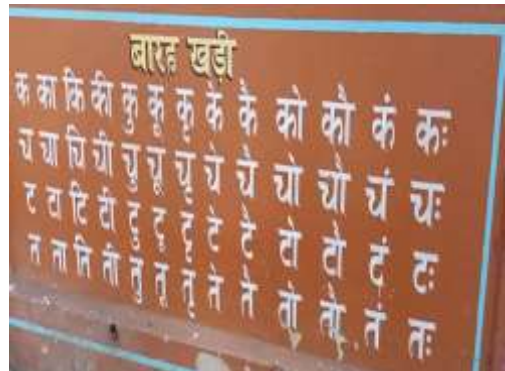 बारह खडी
क का कि की कु कू कृ के कै को कौ कं कः
च चा चि ची चु चू चृ चे चै चो चौ चं चः
ट टा टि टी टु टू टृ टे टै टो टौ टं टः
त ता ति ती तु तू तृ ते तै तो तौ तं तः